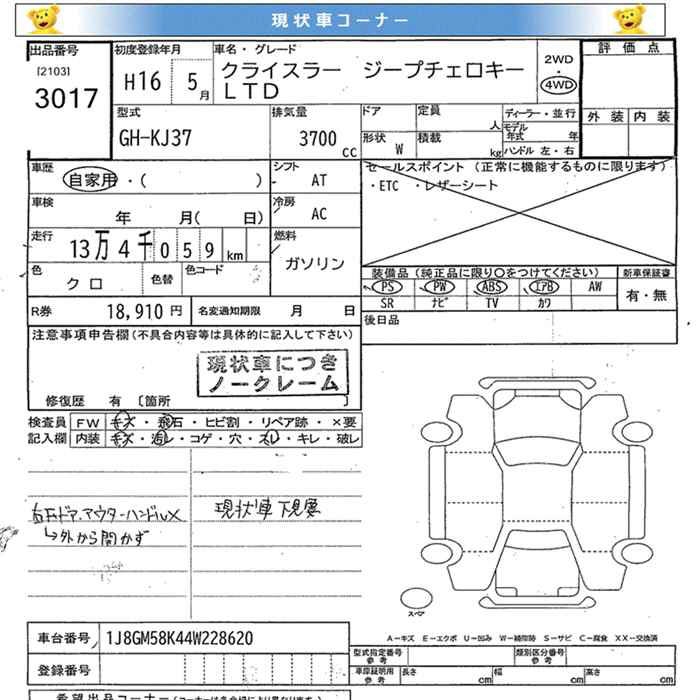 現状車コーナー
出品番号
[2103]
3017
初度登録年月
H16 5月
車名・グレード
クライスラー ジープチェロキー
LTD
2WD
4WD
評価点
外装 内装
型式
GH-KJ37
排気量
3700 CC
ドア
定員
人
形状
W
積載
kg
ディーラー・並行
モデル年式 年
ハンドル 左・右
車歴
自家用・( )
シフト
AT
セールスポイント (正常に機能するものに限ります)
・ETC ・レザーシート
車検
年 月( 日)
冷房
AC
走行
13万4千059km
燃料
ガソリン
色
クロ
色替
色コード
装備品(純正品に限り〇をつけてください)
新車保証書
PS PW ABS エアB AW
SR ナビ TV カワ
有・無
R券
18,910円
名変通知期限 月 日
後日品
注意事項申告欄(不具合内容等は具体的に記入して下さい)
現状車につき
ノークレーム
修復歴 有 〔箇所 〕
検査員
記入欄
FW キズ・飛石・ヒビ割・リペア跡・×要
内装 キズ・汚レ・コゲ・穴・スレ・キレ・破レ
右右ドア、アウターハンドル×
↳外から開かず
現状車下見要
スペア
A-キズ E-エクボ U-凹み W-補修跡 S-サビ C-腐食 XX-交換済
車台番号
1J8GM58K44W228620
登録番号
型式指定番号
参考
類別区分番号
参考
車庫証明用
参考
長さ cm 幅 cm 高さ cm
希望出品コーナー